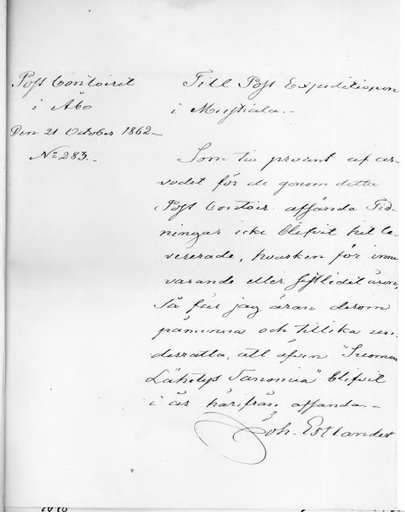 Post Contoiret
i Åbo
Den 21 October 1862
No 283.
Till Post Expeditionen
i Mustiala.
Som tio procent af ar-
vodet för de genom detta
Post Contoir afsända Tid-
ningar icke blifvit hit le-
vererade, hvarken för inne-
varande eller sistlidet åren,
Så får jag äran derom
påminna och tillika un-
derrätta, att äfven "Suomen
Lähetys Sanomia" blifvit
i år härifrån afsända.
Joh. Estlander